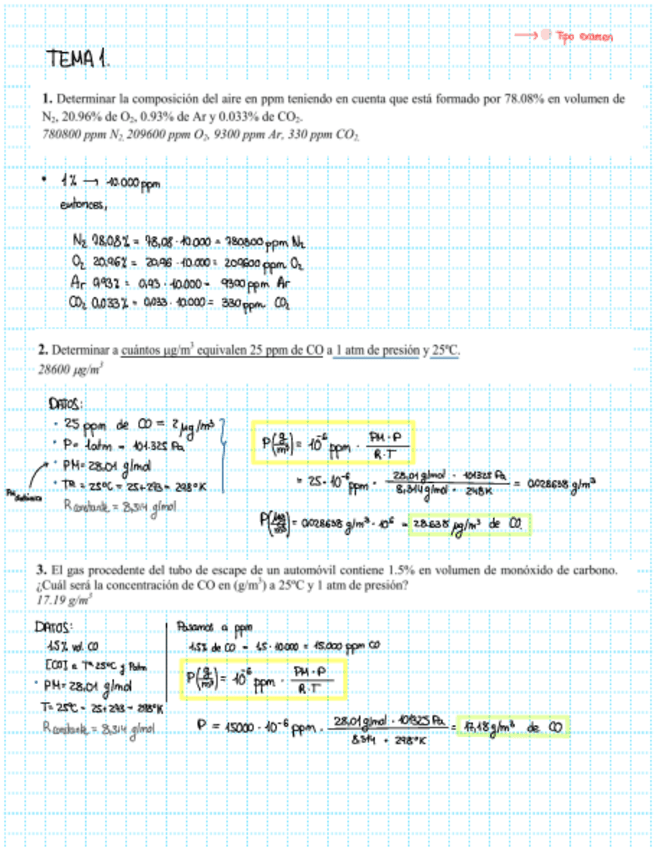 → Tipo examen
TEMA 1.
1. Determinar la composición del aire en ppm teniendo en cuenta que está formado por 78.08% en volumen de
N₂, 20.96% de O₂, 0.93% de Ar y 0.033% de CO₂.
780800 ppm N₂, 209600 ppm O₂, 9300 ppm Ar, 330 ppm CO₂
• 1% → 10.000 ppm
entonces,
N₂ 78,08% = 78,08 · 10.000 = 780800 ppm N₂
O₂ 20,96% = 20,96 · 10.000 = 209600 ppm O₂
Ar 0,93% = 0,93 · 10.000 = 9300 ppm Ar
CO₂ 0,033% = 0,033 · 10.000 = 330 ppm CO₂
2. Determinar a cuántos µg/m³ equivalen 25 ppm de CO a 1 atm de presión y 25ºC.
28600 µg/m³
DATOS:
• 25 ppm de CO = ? µg/m³
• P = 1atm = 101.325 Pa
• PM = 28,01 g/mol
• Tª = 25ºC = 25+273 = 298ºK
R constante = 8,314 g/mol
P(g/m³) = 10⁻⁶ ppm · PM · P / R · T
= 25 · 10⁻⁶ ppm · 28,01 g/mol · 101325 Pa / 8,314 g/mol · 298K = 0,028638 g/m³
P(µg/m³) = 0,028638 g/m³ · 10⁶ = 28.638 µg/m³ de CO.
3. El gas procedente del tubo de escape de un automóvil contiene 1.5% en volumen de monóxido de carbono.
¿Cuál será la concentración de CO en (g/m³) a 25ºC y 1 atm de presión?
17.19 g/m³
DATOS:
1,5% vol. CO
[CO] a Tª 25ºC y 1atm
• PM = 28,01 g/mol
T = 25ºC = 25+273 = 298ºK
R constante = 8,314 g/mol
Pasamos a ppm
1,5% de CO = 1,5 · 10.000 = 15.000 ppm CO
P(g/m³) = 10⁻⁶ ppm · PM · P / R · T
P = 15000 · 10⁻⁶ ppm · 28,01 g/mol · 101325 Pa / 8,314 · 298ºK = 17,18 g/m³ de CO